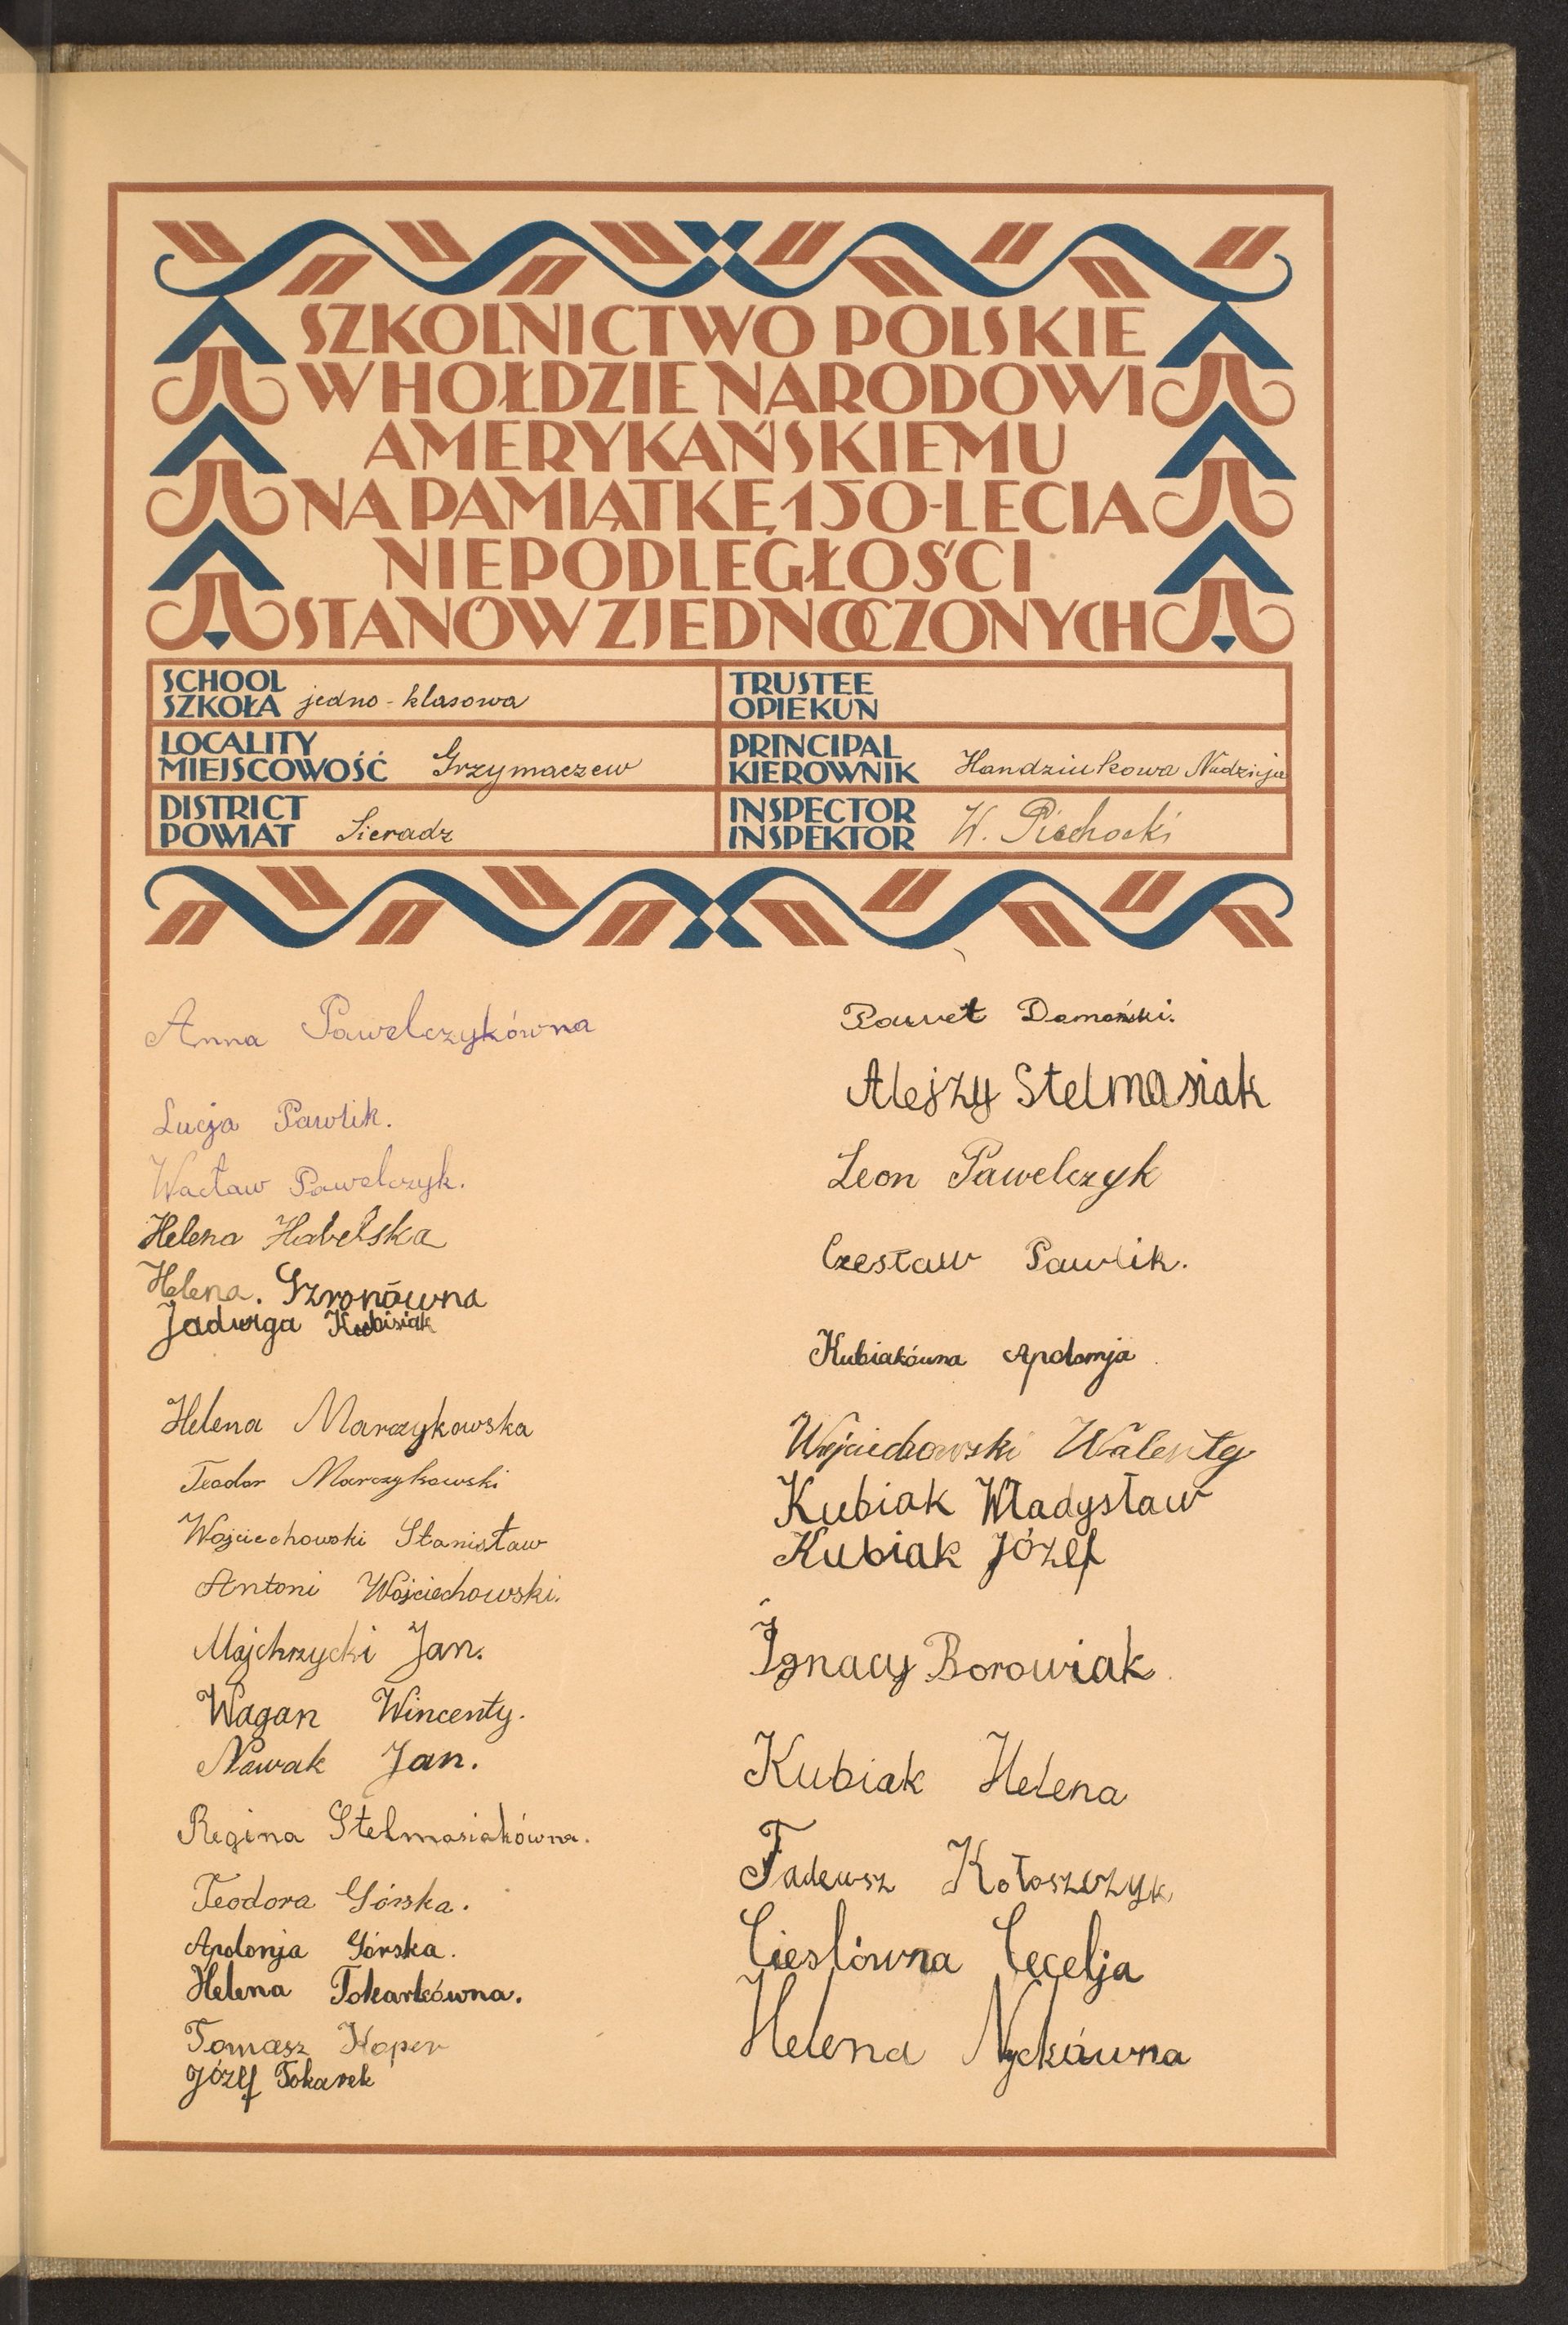 SZKOLNICTWO POLSKIE
W HOŁDZIE NARODOWI
AMERYKAŃSKIEMU
NA PAMIĄTKĘ 150-LECIA
NIEPODLEGŁOŚCI
STANÓW ZJEDNOCZONYCH
SCHOOL
SZKOŁA jedno-klasowa
TRUSTEE
OPIEKUN
LOCALITY
MIEJSCOWOŚĆ Grzymaczew
PRINCIPAL
KIEROWNIK Handziukowa Nadzieja
DISTRICT
POWIAT Sieradz
INSPECTOR
INSPEKTOR W. Piechocki
Anna Pawelczykówna
Lucja Pawlik.
Wacław Pawelczyk.
Helena Habelska
Helena. Szronówna
Jadwiga Kubisiak
Helena Marczykowska
Teodor Marczykowski
Wojciechowski Stanisław
Antoni Wojciechowski.
Majchrzycki Jan.
Wagan Wincenty.
Nowak Jan.
Regina Stelmasiakówna.
Teodora Górska.
Apolonja Górska.
Helena Tokarkówna.
Tomasz Koper
Józef Tokarek
Paweł Domański.
Alejzy Stelmasiak
Leon Pawelczyk
Czesław Pawlik.
Kubiakówna Apolonja
Wojciechowski Walenty
Kubiak Władysław
Kubiak Józef
Ignacy Borowiak
Kubiak Helena
Tadeusz Kołoszczyk
Cieslówna Cecelja
Helena Nyckówna